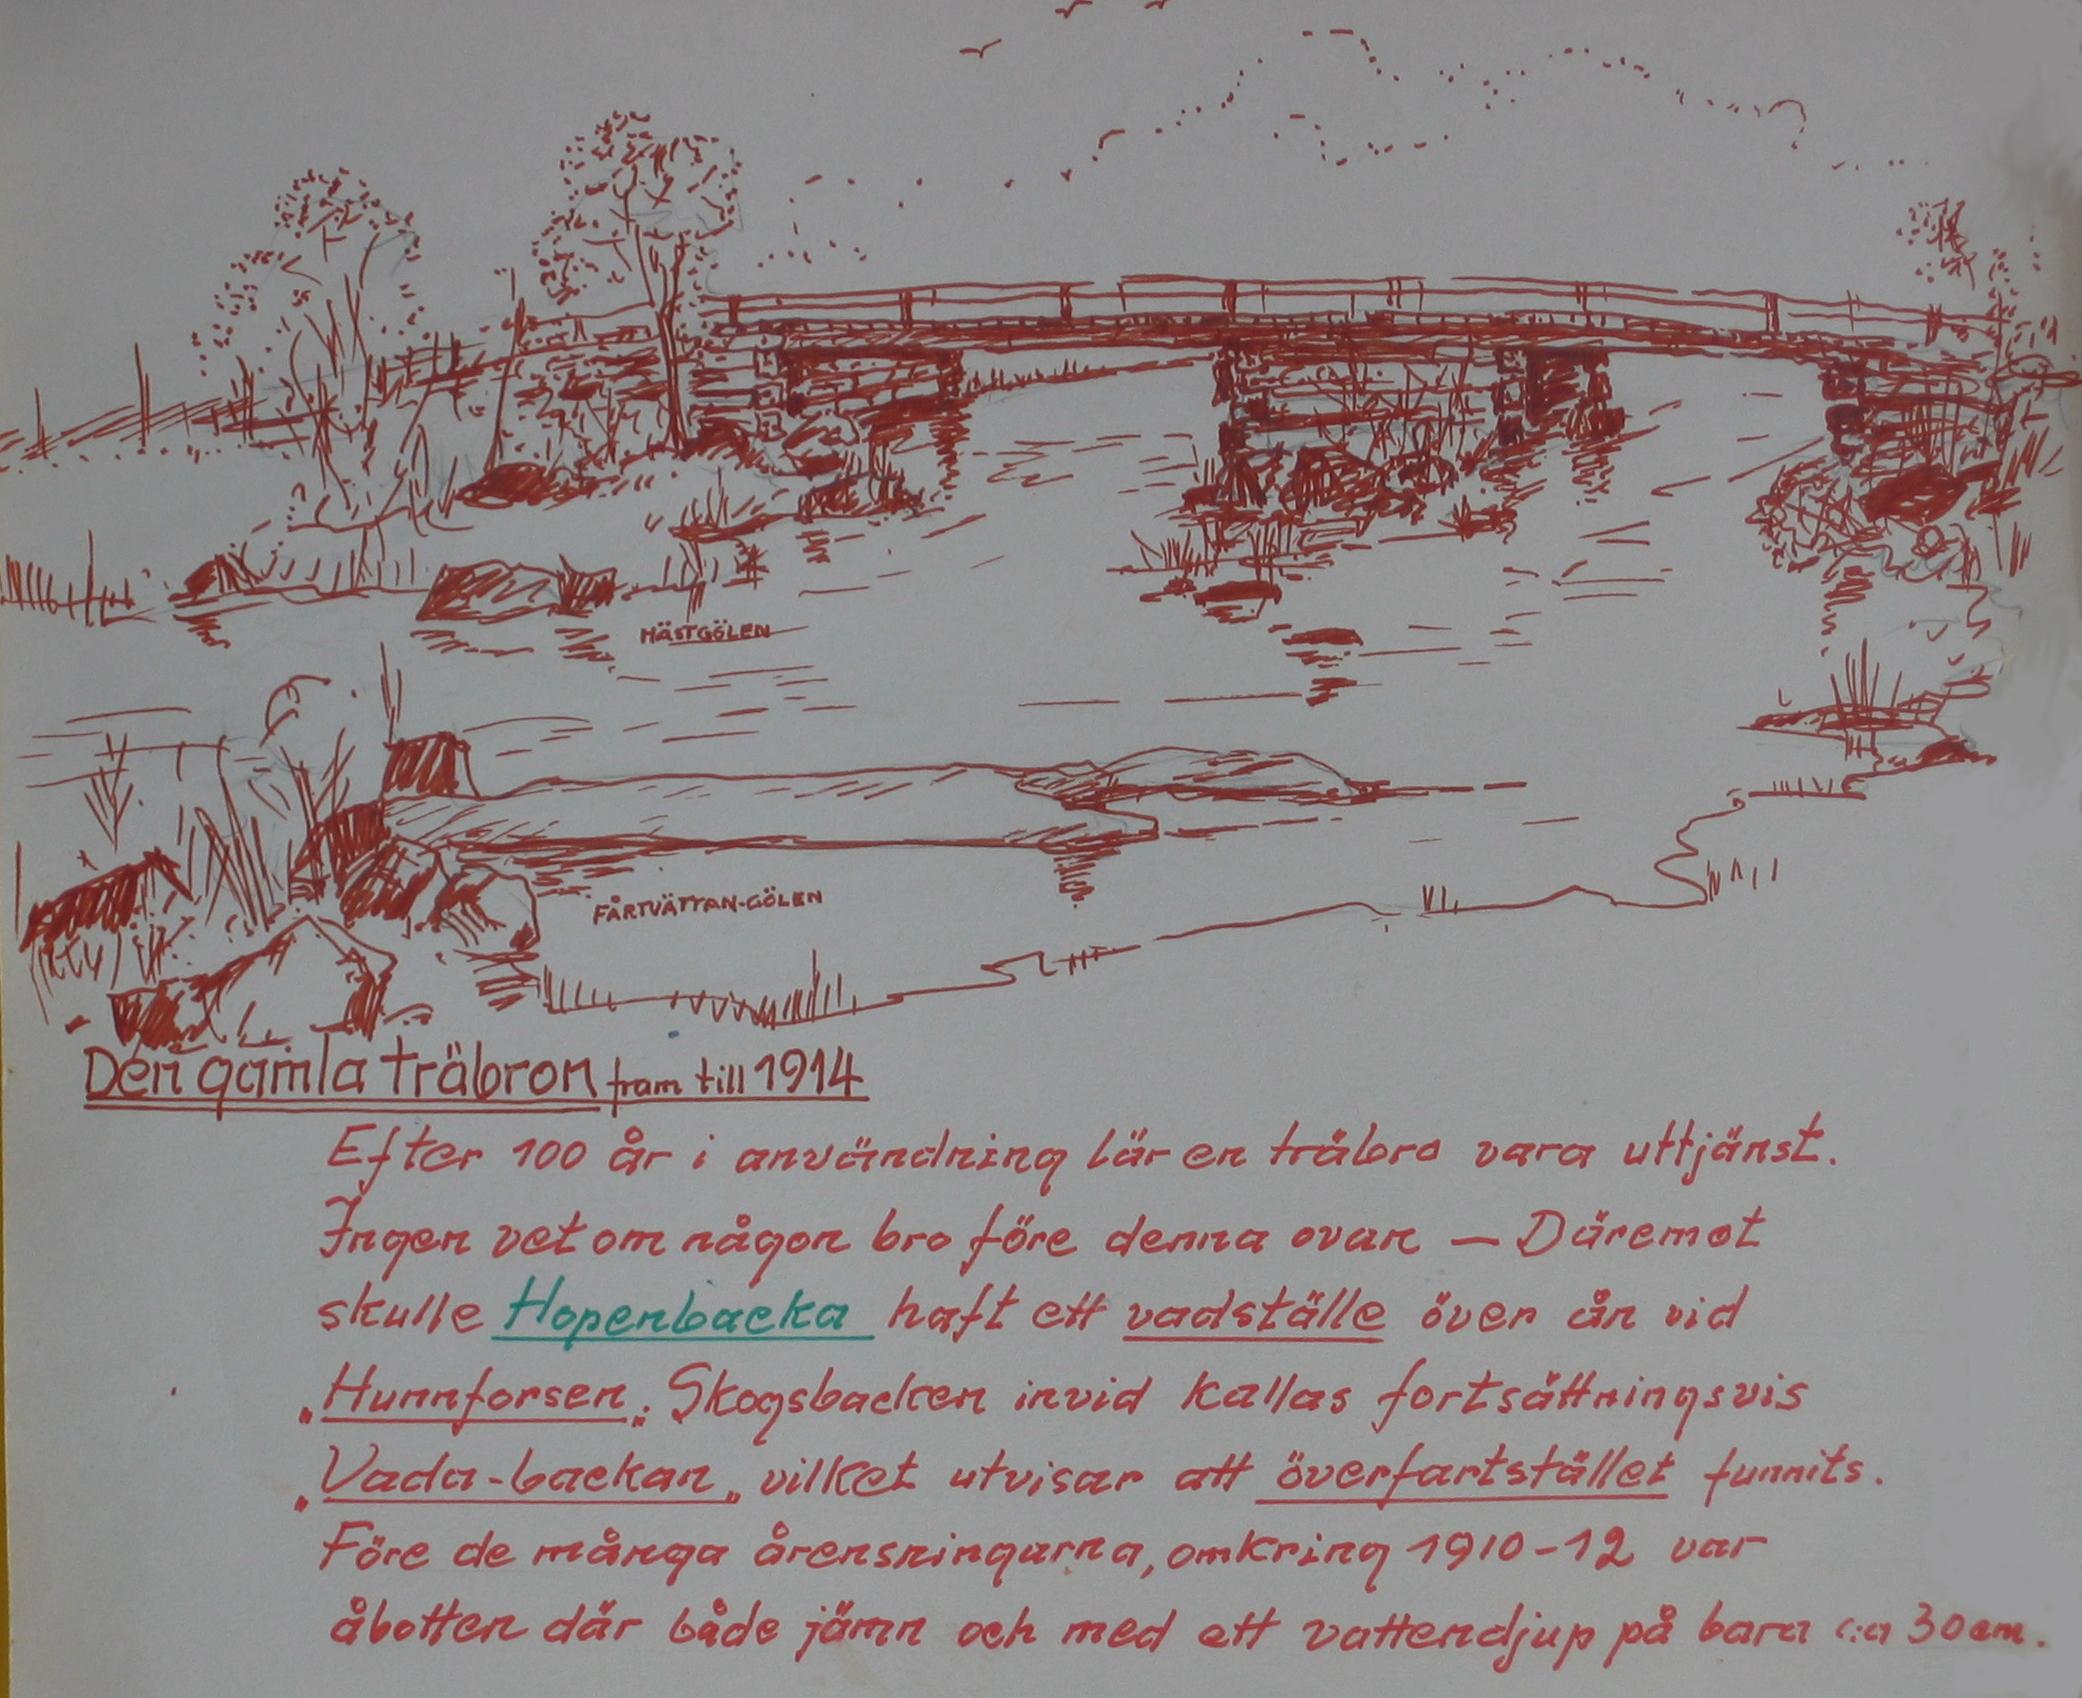 HÄSTGÖLEN
FÅRTVÄTTAN-GÖLEN
Den gamla träbron fram till 1914
Efter 100 år i användning lär en träbro vara uttjänst.
Ingen vet om någon bro före denna ovan — Däremot
skulle Hopenbacka haft ett vadställe över ån vid
„Hunnforsen„. Skogsbacken invid kallas fortsättningsvis
„Vada-backan„ vilket utvisar att överfartstället funnits.
Före de många årensningarna, omkring 1910-12 var
åbotten där både jämn och med ett vattendjup på bara c:a 30 cm.